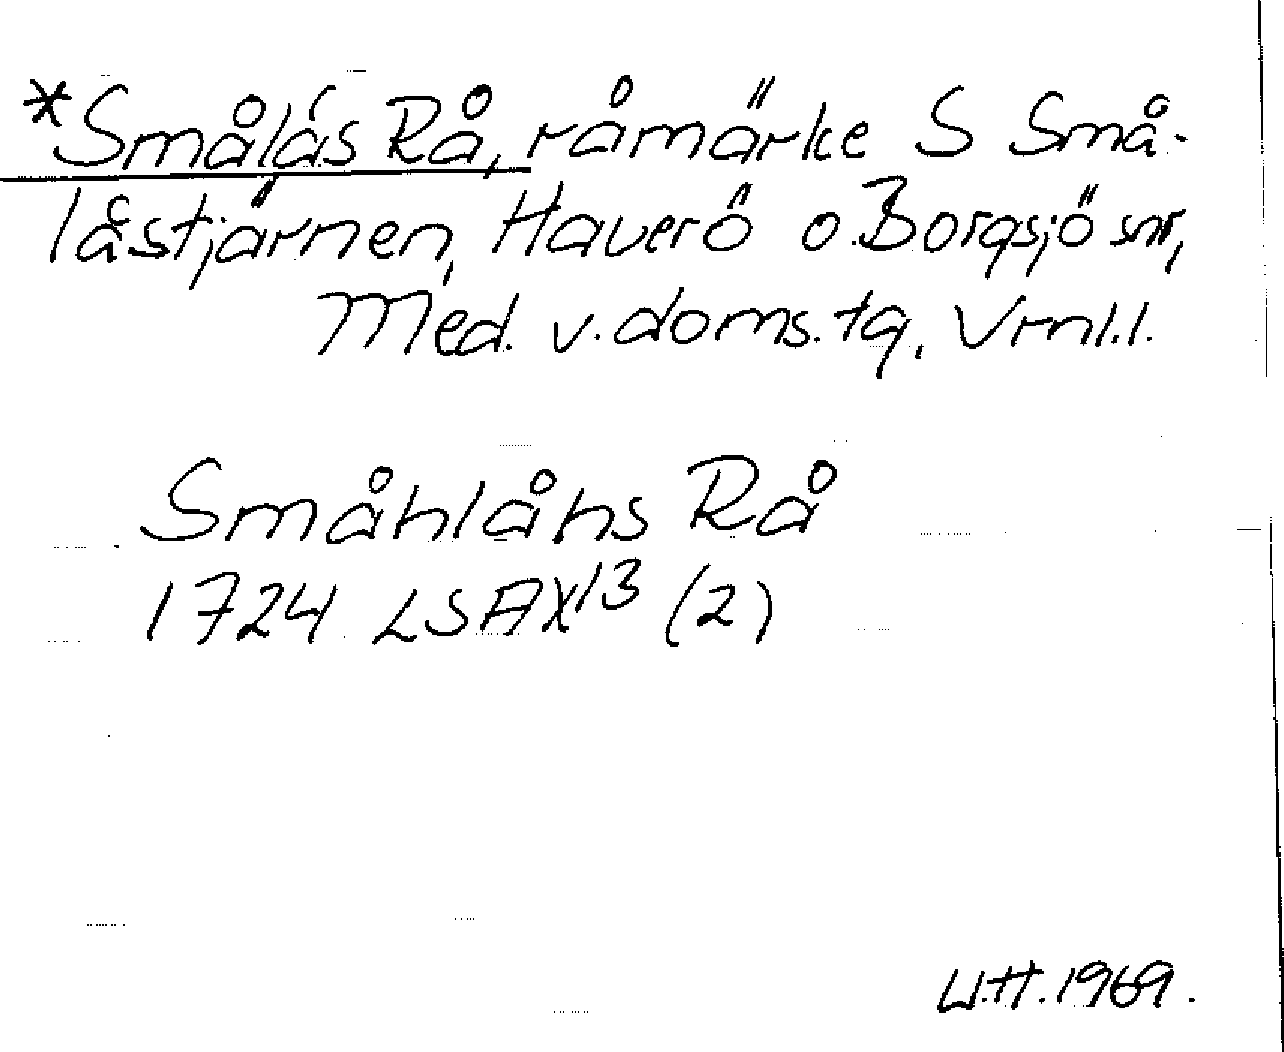 *Smålås Rå, råmärke S Små-
låstjärnen, Haverö o. Borgsjö snr,
Med. v. doms. tg, Vrnl.l.
Småhlåhs Rå
1724 LSA X¹³ (2)
U.H. 1969.